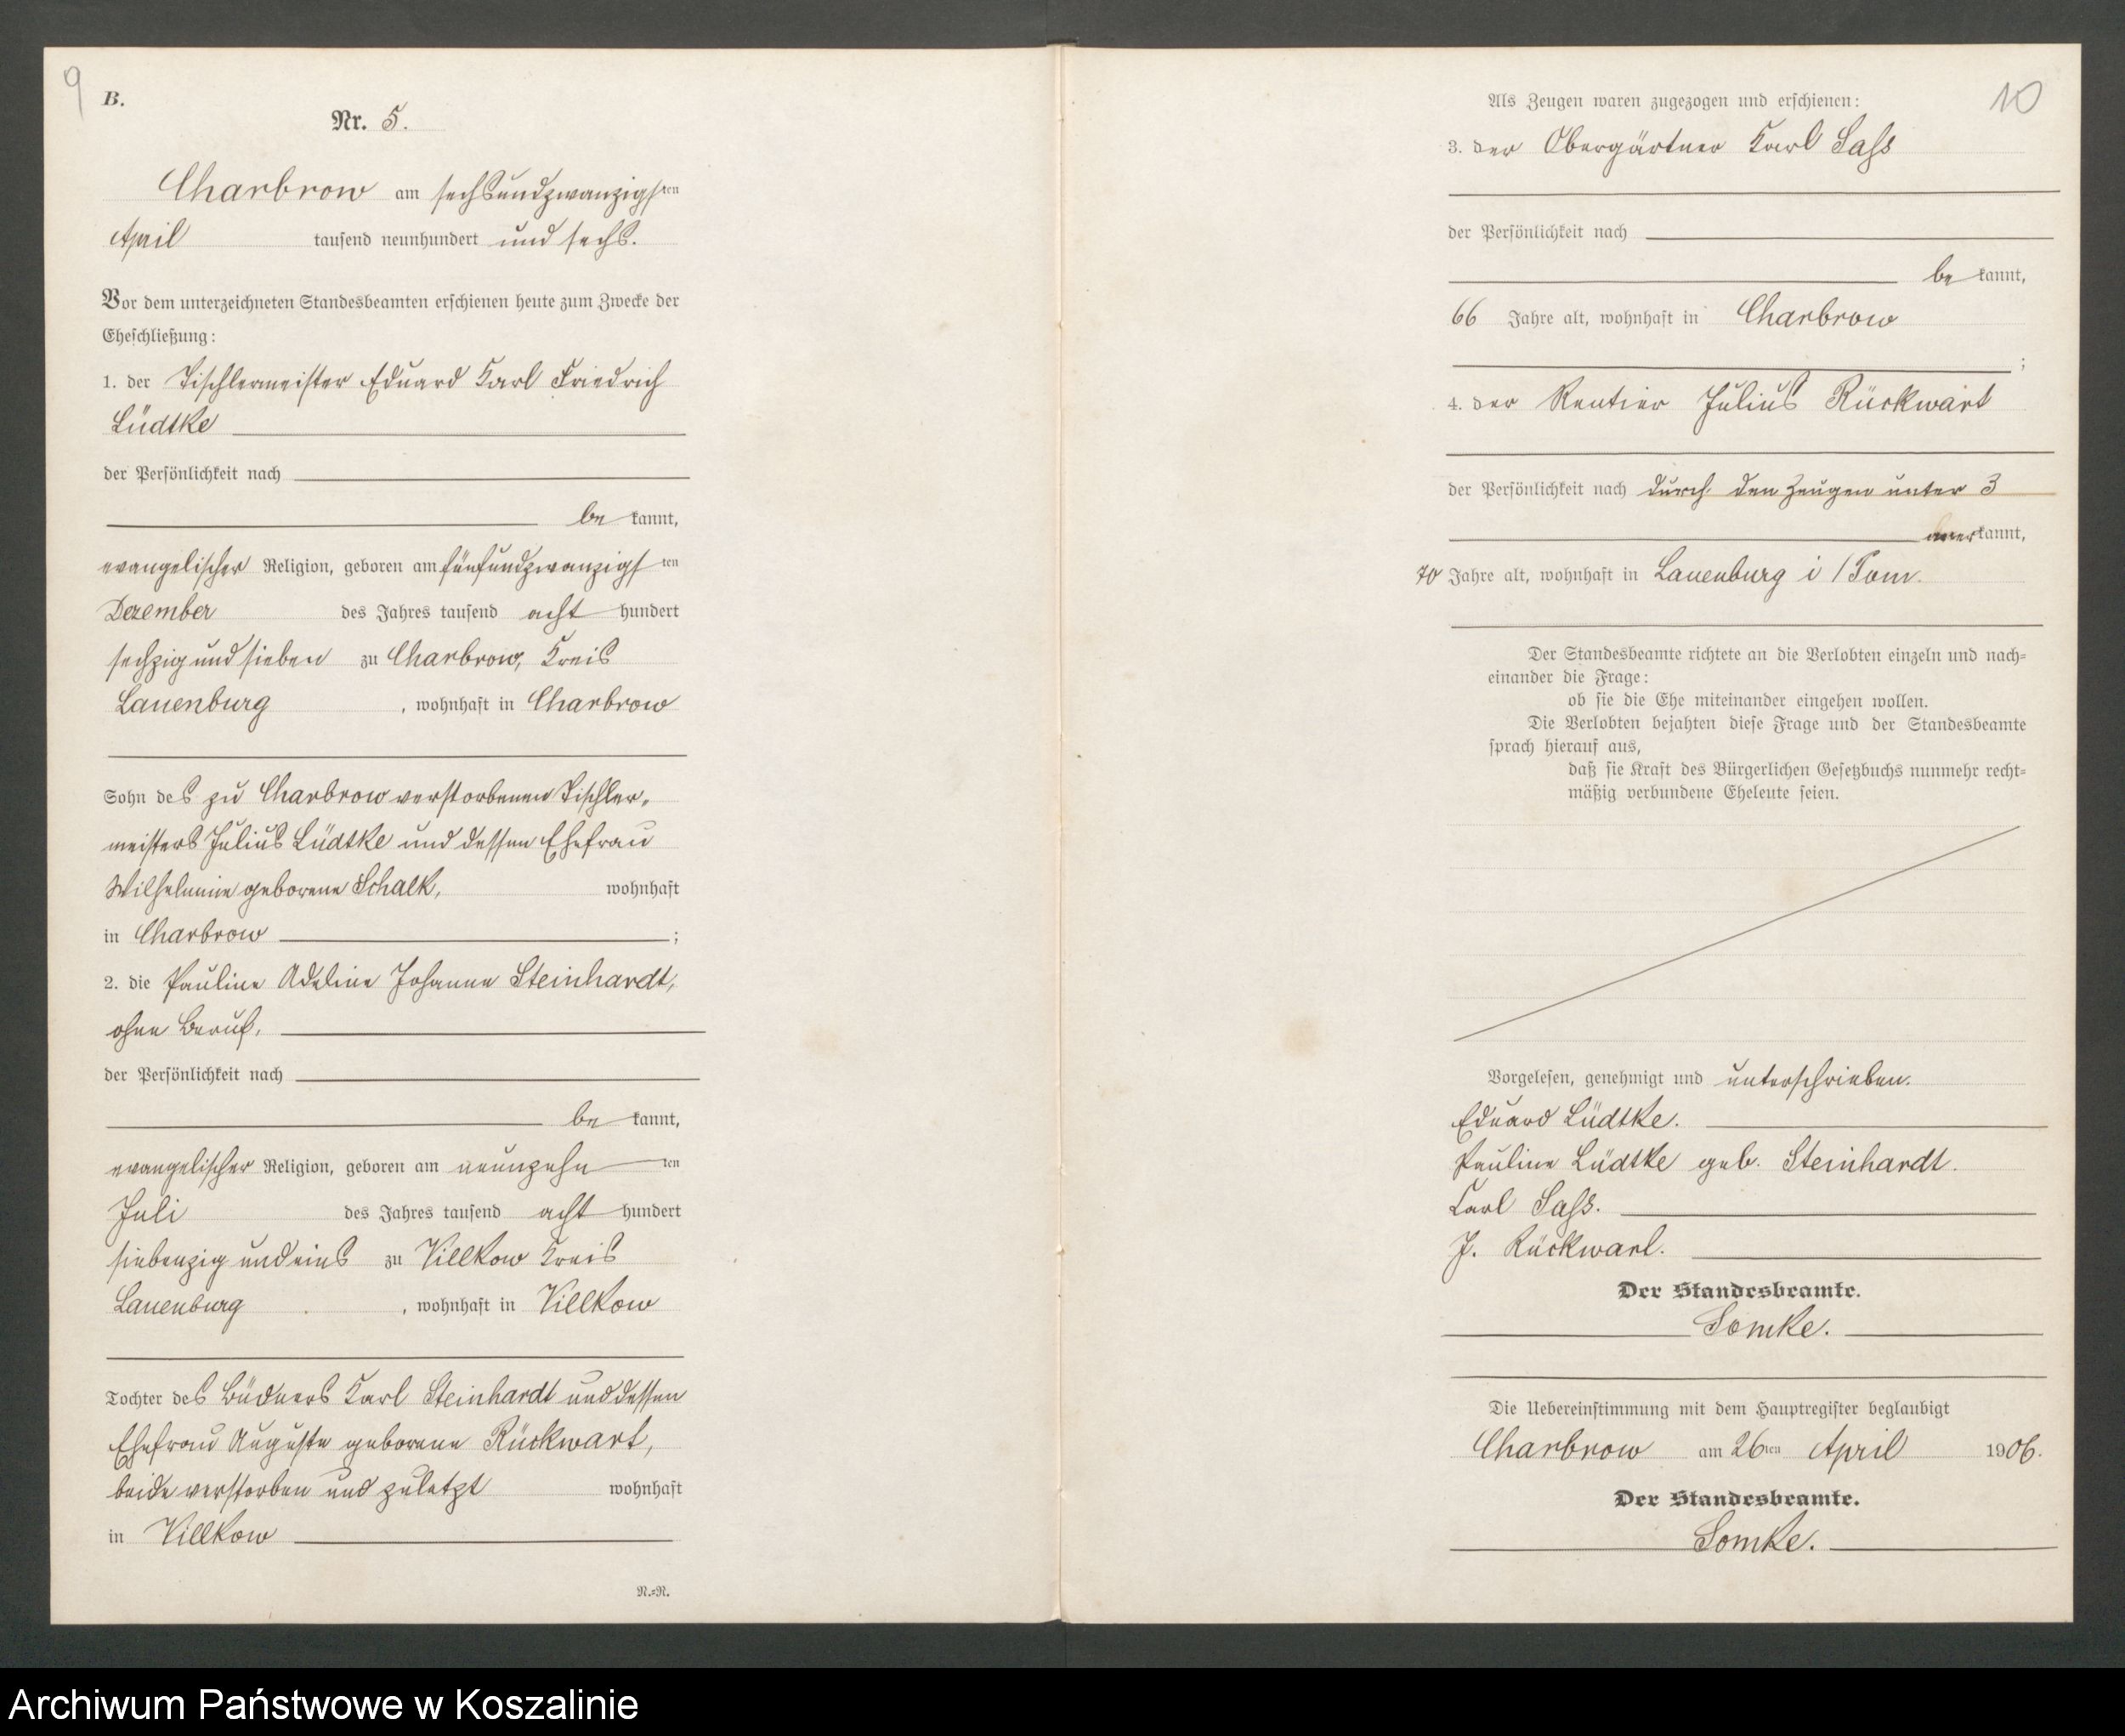 9
B.
Nr. 5.
Charbrow am sechsundzwanzigsten
April tausend neunhundert und sechs.
Vor dem unterzeichneten Standesbeamten erschienen heute zum Zwecke der
Eheschließung:
1. der Tischlermeister Eduard Karl Friedrich
Lüdtke
der Persönlichkeit nach
be kannt,
evangelischer Religion, geboren am fünfundzwanzigsten
Dezember des Jahres tausend acht hundert
sechzig und sieben zu Charbrow, Kreis
Lauenburg, wohnhaft in Charbrow
Sohn des zu Charbrow verstorbenen Tischler-
meisters Julius Lüdtke und dessen Ehefrau
Wilhelmine geborene Schalk, wohnhaft
in Charbrow ;
2. die Pauline Adeline Johanne Steinhardt,
ohne Beruf,
der Persönlichkeit nach
be kannt,
evangelischer Religion, geboren am neunzehnten
Juli des Jahres tausend acht hundert
siebenzig und eins zu Villkow Kreis
Lauenburg, wohnhaft in Villkow
Tochter des Büdners Karl Steinhardt und dessen
Ehefrau Auguste geborene Rückwart,
beide verstorben und zuletzt wohnhaft
in Villkow
N.=N.
10
Als Zeugen waren zugezogen und erschienen:
3. der Obergärtner Karl Sass
der Persönlichkeit nach
be kannt,
66 Jahre alt, wohnhaft in Charbrow
;
4. der Rentier Julius Rückwart
der Persönlichkeit nach durch den Zeugen unter 3
anerkannt,
70 Jahre alt, wohnhaft in Lauenburg i/Pom.
Der Standesbeamte richtete an die Verlobten einzeln und nach=
einander die Frage:
ob sie die Ehe miteinander eingehen wollen.
Die Verlobten bejahten diese Frage und der Standesbeamte
sprach hierauf aus,
daß sie Kraft des Bürgerlichen Gesetzbuchs nunmehr recht=
mäßig verbundene Eheleute seien.
Vorgelesen, genehmigt und unterschrieben.
Eduard Lüdtke.
Pauline Lüdtke geb. Steinhardt.
Karl Sass.
J. Rückwart.
Der Standesbeamte.
Somke.
Die Uebereinstimmung mit dem Hauptregister beglaubigt
Charbrow am 26ten April 1906.
Der Standesbeamte.
Somke.
Archiwum Państwowe w Koszalinie